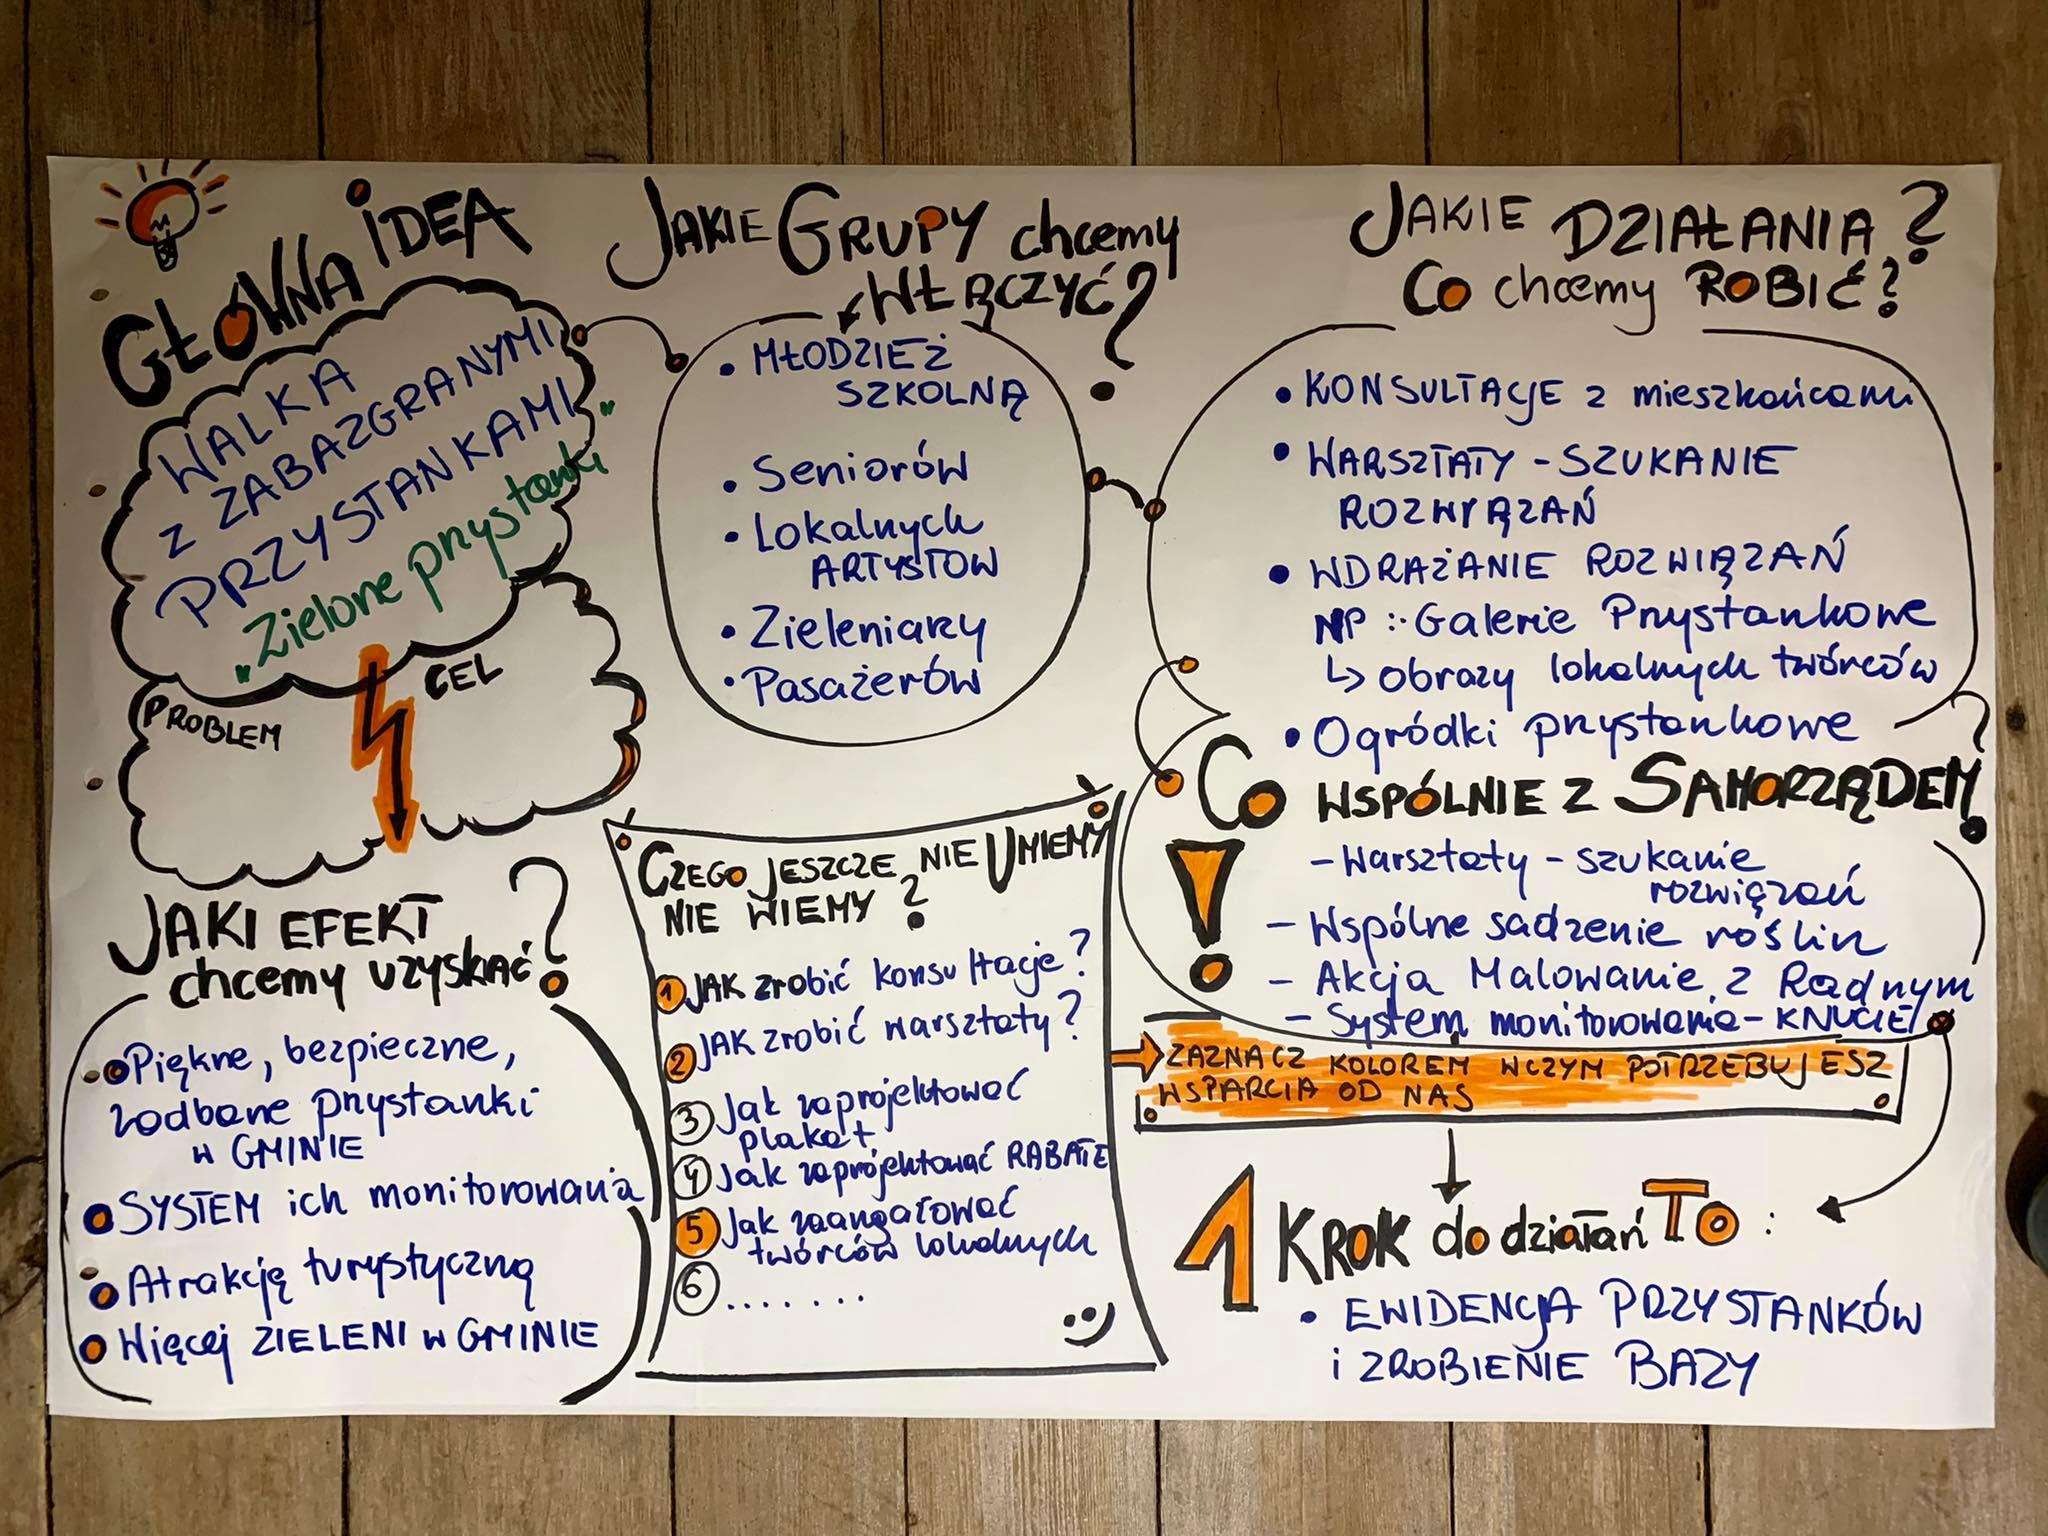 GŁÓWNA IDEA
WALKA
Z ZABAZGRANYMI
PRZYSTANKAMI
"Zielone przystanki"
PROBLEM
CEL
JAKI EFEKT
chcemy UZYSKAĆ?
Piękne, bezpieczne,
zadbane przystanki
w GMINIE
SYSTEM ich monitorowania
Atrakcję turystyczną
Więcej ZIELENI w GMINIE
JAKIE GRUPY chcemy
WŁĄCZYĆ?
• MŁODZIEŻ
SZKOLNĄ
• Seniorów
• Lokalnych
ARTYSTOW
• Zieleniary
• Pasażerów
CZEGO JESZCZE NIE UMIEMY
NIE WIEMY?
1 JAK zrobić konsultacje?
2 JAK zrobić warsztaty?
3 Jak zaprojektować
plakat
4 Jak zaprojektować RABATE
5 Jak zaangażować
twórców lokalnych
6 .......
JAKIE DZIAŁANIA?
Co chcemy ROBIĆ?
• KONSULTACJE z mieszkańcami
• WARSZTATY - SZUKANIE
ROZWIĄZAŃ
• WDRAŻANIE ROZWIĄZAŃ
NP.: Galerie Przystankowe
↳ obrazy lokalnych twórców
• Ogródki przystankowe
Co WSPÓLNIE Z SAMORZĄDEM?
!
- Warsztaty - szukanie
rozwiązań
- Wspólne sadzenie roślin
- Akcja Malowanie z Radnym
- System monitorowania - KNUCIE
ZAZNACZ KOLOREM W CZYM POTRZEBUJESZ
WSPARCIA OD NAS
1 KROK do działań TO:
• EWIDENCJA PRZYSTANKÓW
i ZROBIENIE BAZY